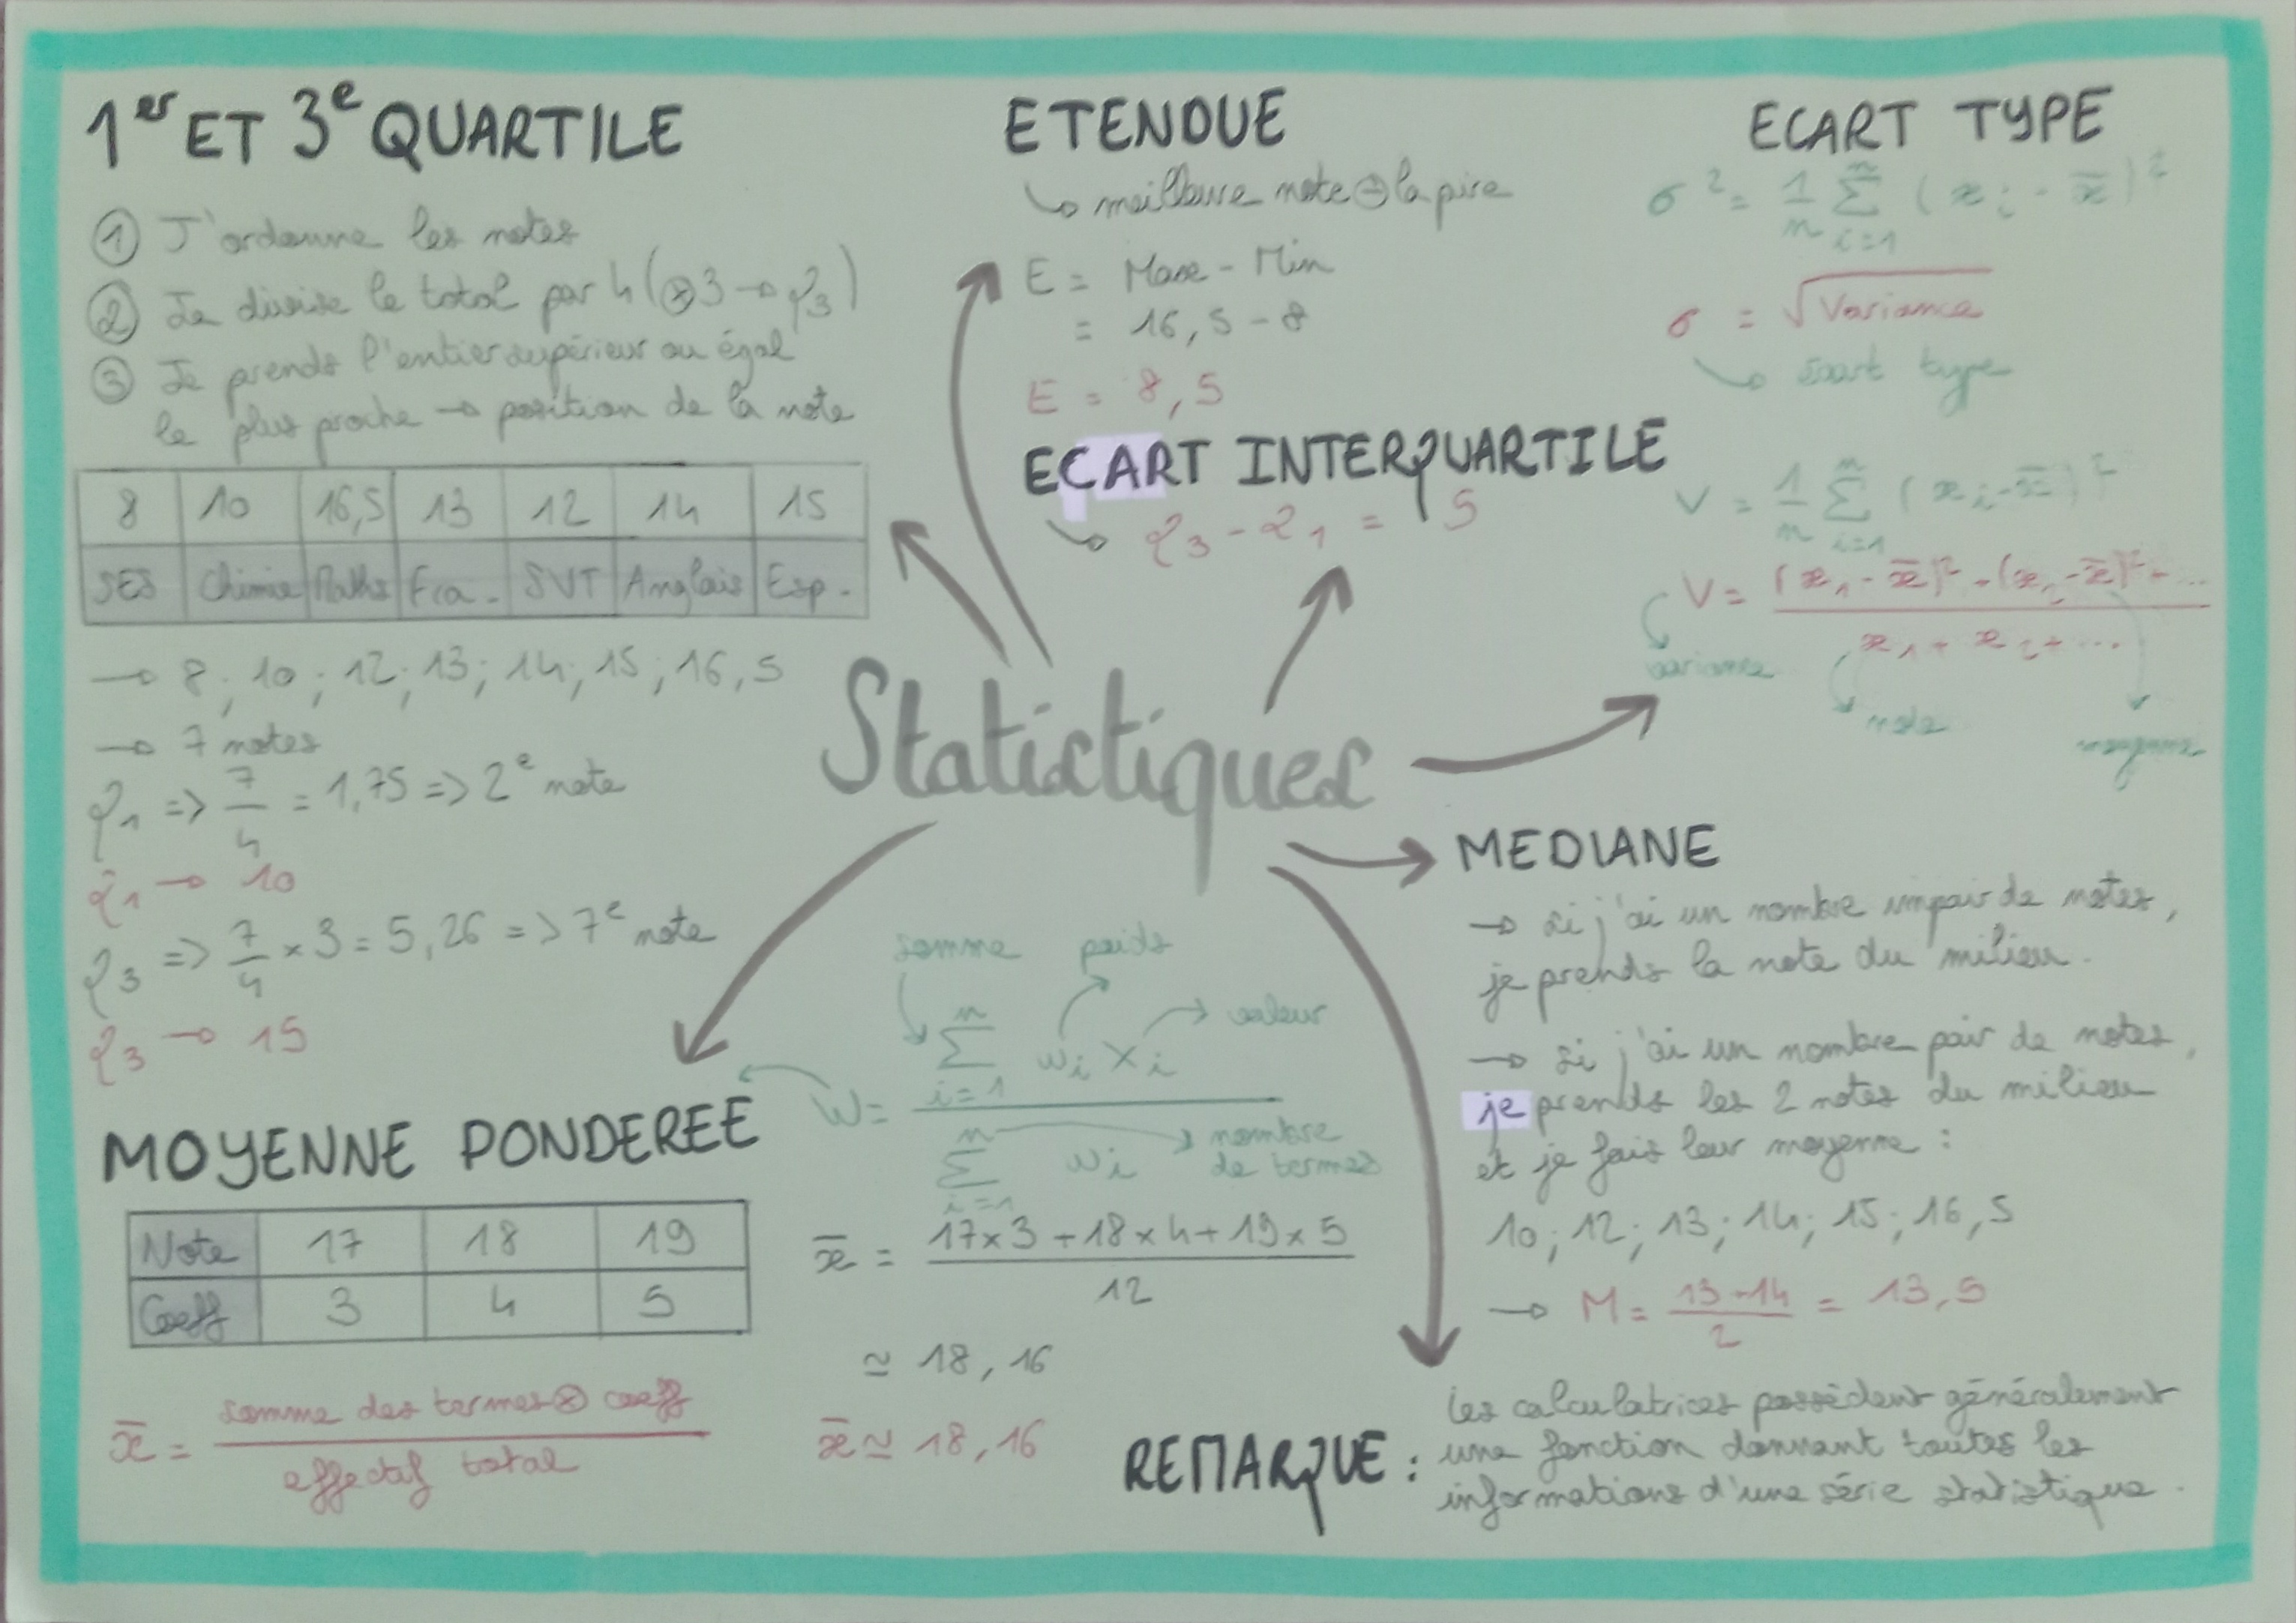 1er ET 3e QUARTILE
① J'ordonne les notes
② Je divise le total par 4 (⊗3 → Q3)
③ Je prends l'entier supérieur ou égal
le plus proche → position de la note
8 10 16,5 13 12 14 15
SES Chimie Maths Fra. SVT Anglais Esp.
→ 8 ; 10 ; 12 ; 13 ; 14 ; 15 ; 16,5
→ 7 notes
Q1 => 7/4 = 1,75 => 2e note
Q1 → 10
Q3 => 7/4 × 3 = 5,26 => 7e note
Q3 → 15
ETENDUE
↳ meilleure note ⊖ la pire
E = Max - Min
= 16,5 - 8
E = 8,5
ECART INTERQUARTILE
↳ Q3 - Q1 = 5
ECART TYPE
σ² = 1/n Σ i=1 n (xi - x̄)²
σ = √Variance
↳ écart type
V = 1/n Σ i=1 n (xi - x̄)²
V = (x1 - x̄)² + (x2 - x̄)² + ... / x1 + x2 + ...
variance
note
moyenne
Statistiques
MEDIANE
→ si j'ai un nombre impair de notes,
je prends la note du milieu.
→ si j'ai un nombre pair de notes,
je prends les 2 notes du milieu
et je fais leur moyenne :
10 ; 12 ; 13 ; 14 ; 15 ; 16,5
→ M = 13+14 / 2 = 13,5
MOYENNE PONDEREE
Note 17 18 19
Coeff 3 4 5
x̄ = somme des termes ⊗ coeff / effectif total
somme poids
valeur
W = Σ i=1 n wi xi / Σ i=1 n wi
nombre
de termes
x̄ = 17×3 + 18×4 + 19×5 / 12
≃ 18,16
x̄ ≃ 18,16
REMARQUE :
Les calculatrices possèdent généralement
une fonction donnant toutes les
informations d'une série statistique.